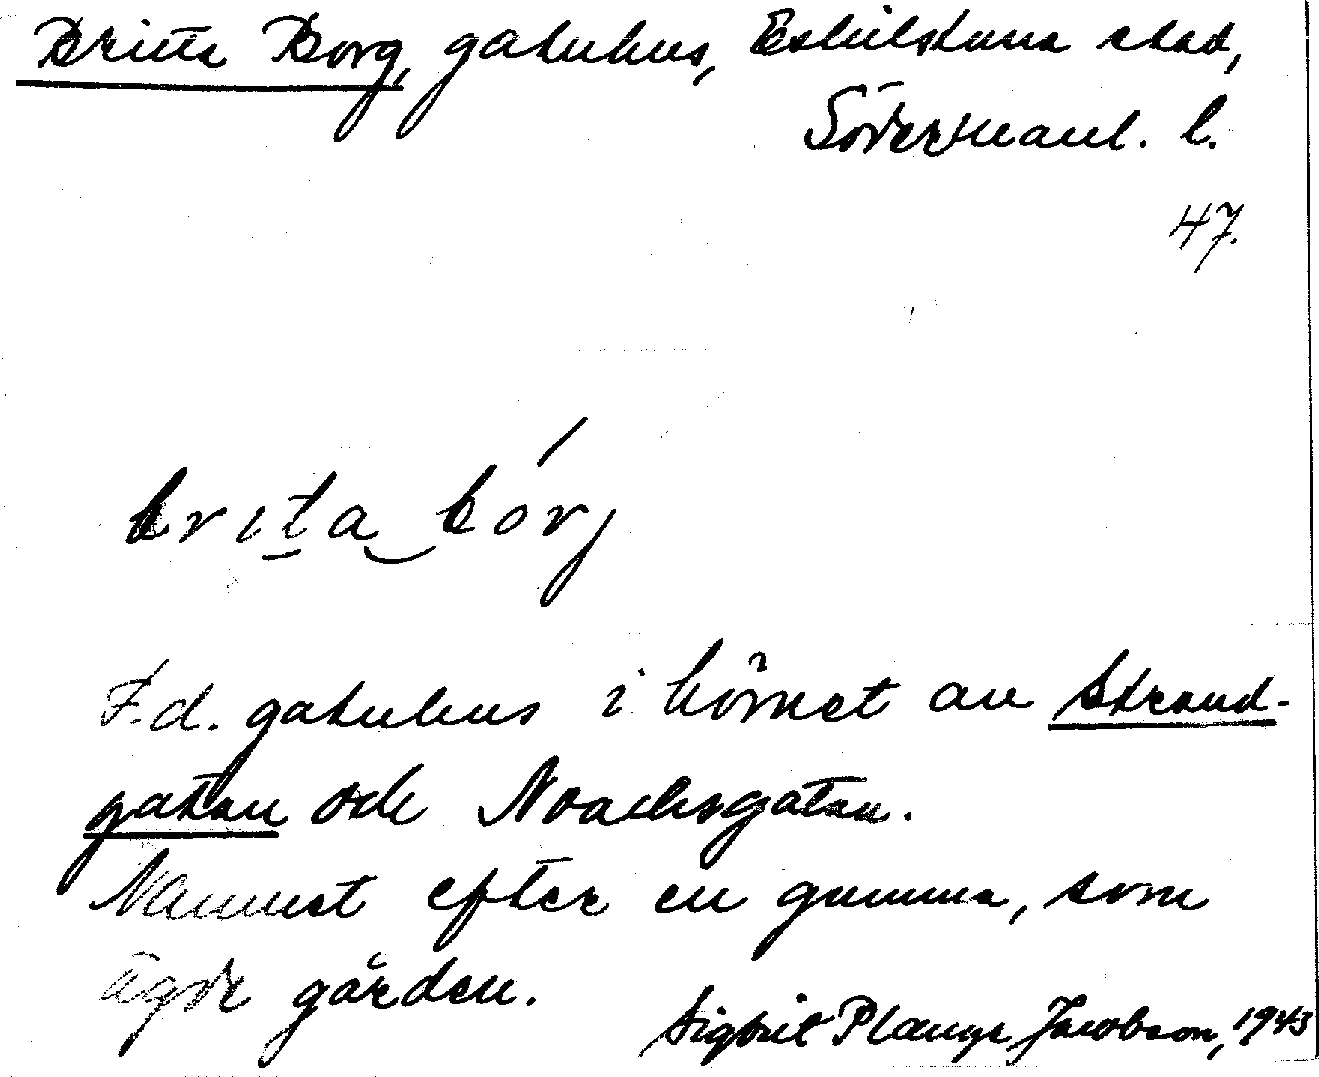 Britta Borg, gatuhus, Eskilstuna stad,
Södermanl. l.
47.
brita bórj
F.d. gatuhus i hörnet av Strand-
gatan och Noachsgatan.
Namnet efter en gumma, som
ägde gården.
Sigbrit Plænge Jacobson, 1943